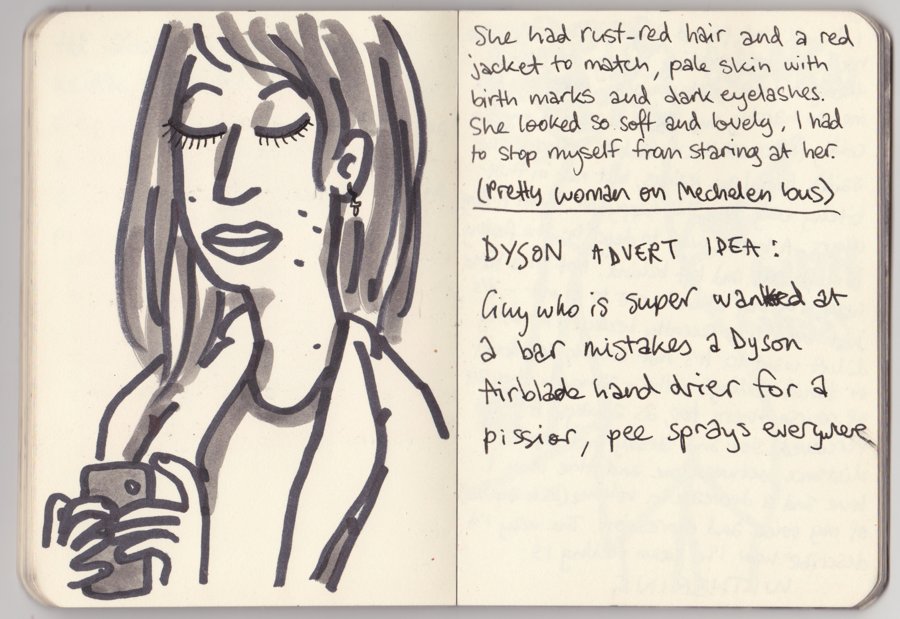 She had rust-red hair and a red
jacket to match, pale skin with
birth marks and dark eyelashes.
She looked so soft and lovely, I had
to stop myself from staring at her.
(Pretty woman on Mechelen bus)
DYSON ADVERT IDEA:
Guy who is super wanked at
a bar mistakes a Dyson
Airblade hand drier for a
pissior, pee sprays everywhere